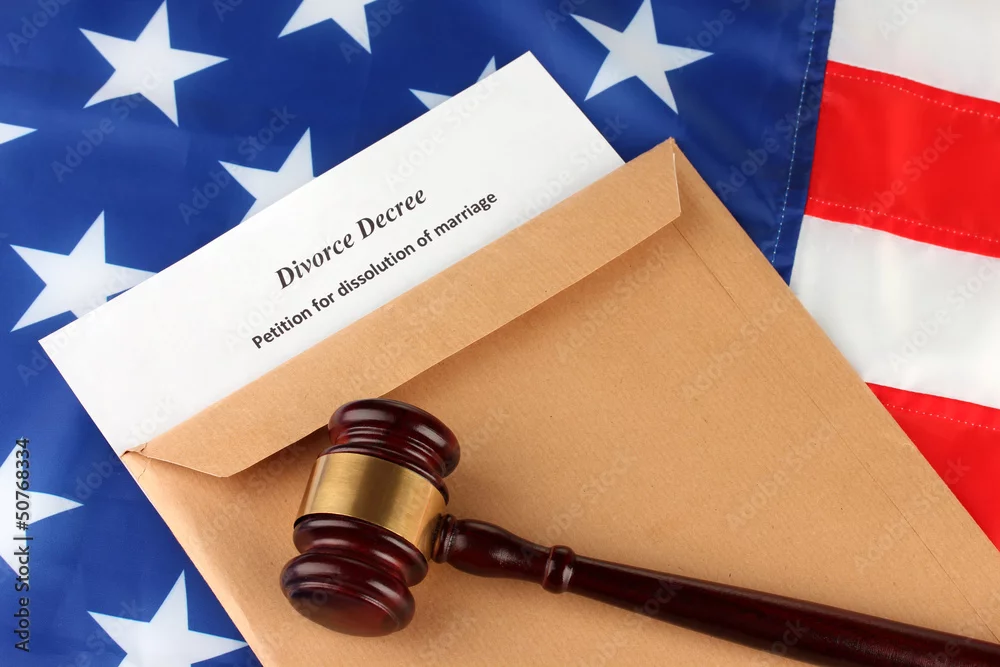 Divorce Decree
Petition for dissolution of marriage
Adobe Stock | #50768334